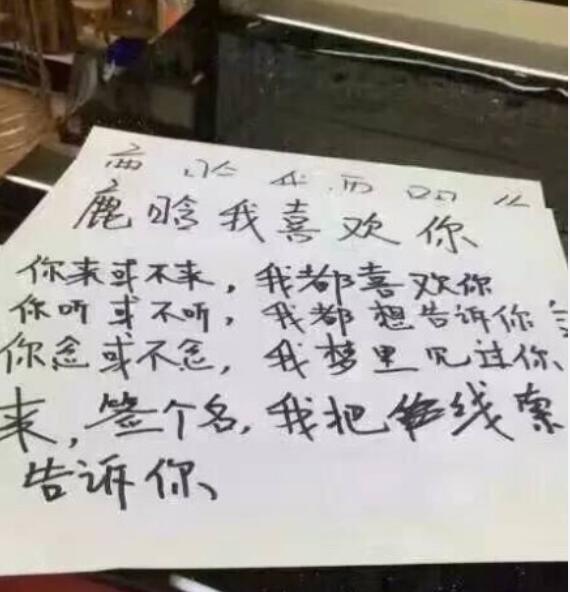 鹿晗我喜欢你
你来或不来，我都喜欢你
你听或不听，我都想告诉你
你念或不念，我梦里见过你、
来，签个名，我把线索
告诉你、